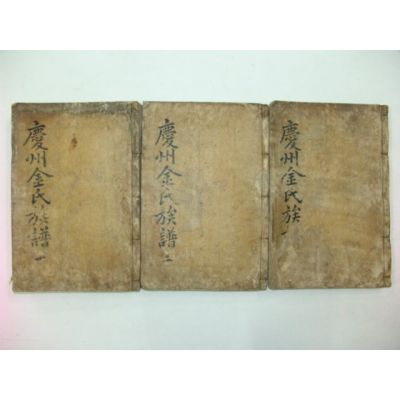 慶州金氏族譜
慶州金氏族譜 二
慶州金氏族